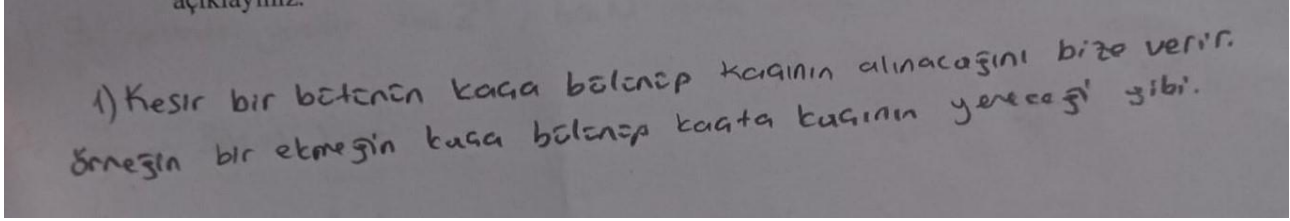 açıklayınız.
1) Kesir bir bütünün kaça bölünüp kaçının alınacağını bize verir.
Örneğin bir ekmeğin kaça bölünüp kaçta kaçının yeneceği gibi.